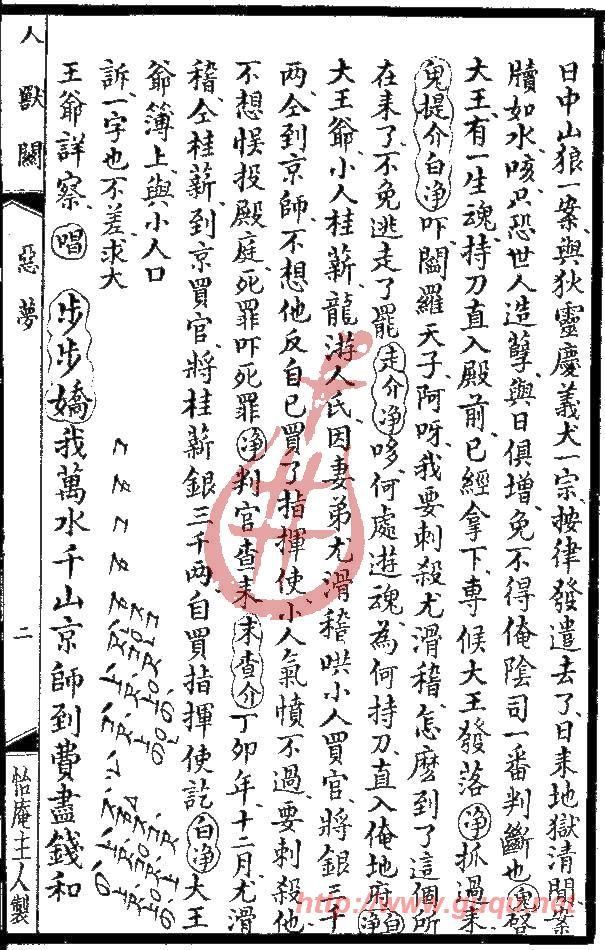 日中山狼一案、與狄靈慶義犬一宗、按律發遣去了、日來地獄清閒、案
牘如水、咳、只恐世人造孽、與日俱增、免不得俺陰司一番判斷也、鬼啓
大王、有一生魂、持刀直入殿前、已經拿下、專候大王發落、净抓過來、
鬼提介白净吓、閻羅天子、阿呀、我要刺殺尤滑稽、怎麽到了這個所
在來了、不免逃走了罷、走介净哆、何處遊魂、為何持刀、直入俺地府、白净
大王爺、小人桂薪、龍游人氏、因妻弟尤滑稽、哄小人買官、將銀三千
两、仝到京師、不想他反自已買了指揮使、小人氣憤不過、要刺殺他、
不想悞投殿庭、死罪吓死罪、净判官查來、末查介丁卯年、十二月、尤滑
稽、仝桂薪、到京買官、將桂薪銀三千两、自買指揮使訖、白净大王
爺、簿上、與小人口
訴、一字也不差、求大
王爺詳察、唱步步嬌我萬水千山京師到費盡錢和
人獸關
惡夢
二
怡庵主人製
http://www.guqu.net